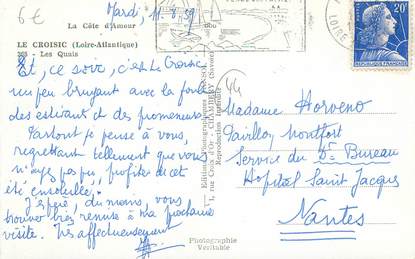 6€
Mardi, 11-8-59
La Côte d'Amour
LE CROISIC (Loire-Atlantique)
363 - Les Quais
Et, ce soir, c'est Le Croisic
un peu bruyant avec la foule
des estivants et des promeneurs.
Partout je pense à vous,
regrettant tellement que vous
n'ayez pas pu profiter de cet
été ensoleillé.
J'espère, du moins, vous
trouver très remise à ma prochaine
visite. Très affectueusement
Editions Photographiques
1, rue Croix d'Or - CHAMBÉRY (Savoie)
Reproduction Interdite
Photographie
Véritable
LOIRE
20F
REPUBLIQUE FRANÇAISE
44
Madame Horveno
Pavillon Montfort
Service du Bureau
Hôpital Saint Jacques
Nantes